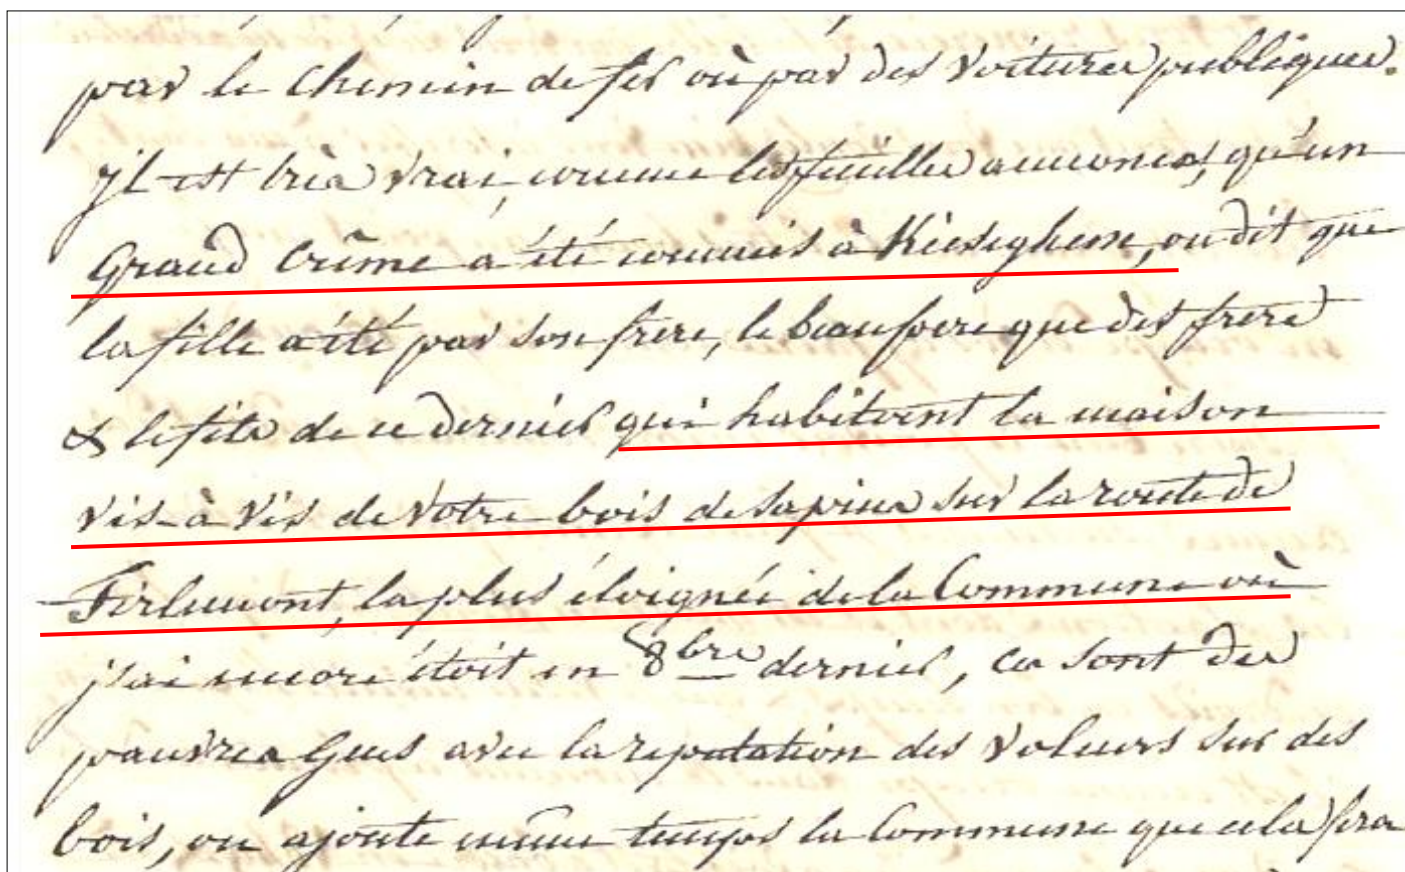 par le chemin de fer où par des voitures publiques.
jl est très vrai, comme les feuilles annonces, qu'un
Grand Crime a été commis à Kieseghem, on dit que
la fille a été par son frere, le beaupere que dit frere
& le fils de ce dernier qui habitoint la maison
vis-à vis de votre bois de sapins sur la route de
Tirlemont, la plus éloignée de la Commune où
j'ai encore étoit en 8bre dernier, ce sont des
pauvres gens avec la reputation des voleurs sur des
bois, on ajoute même temps la Commune que cela fera